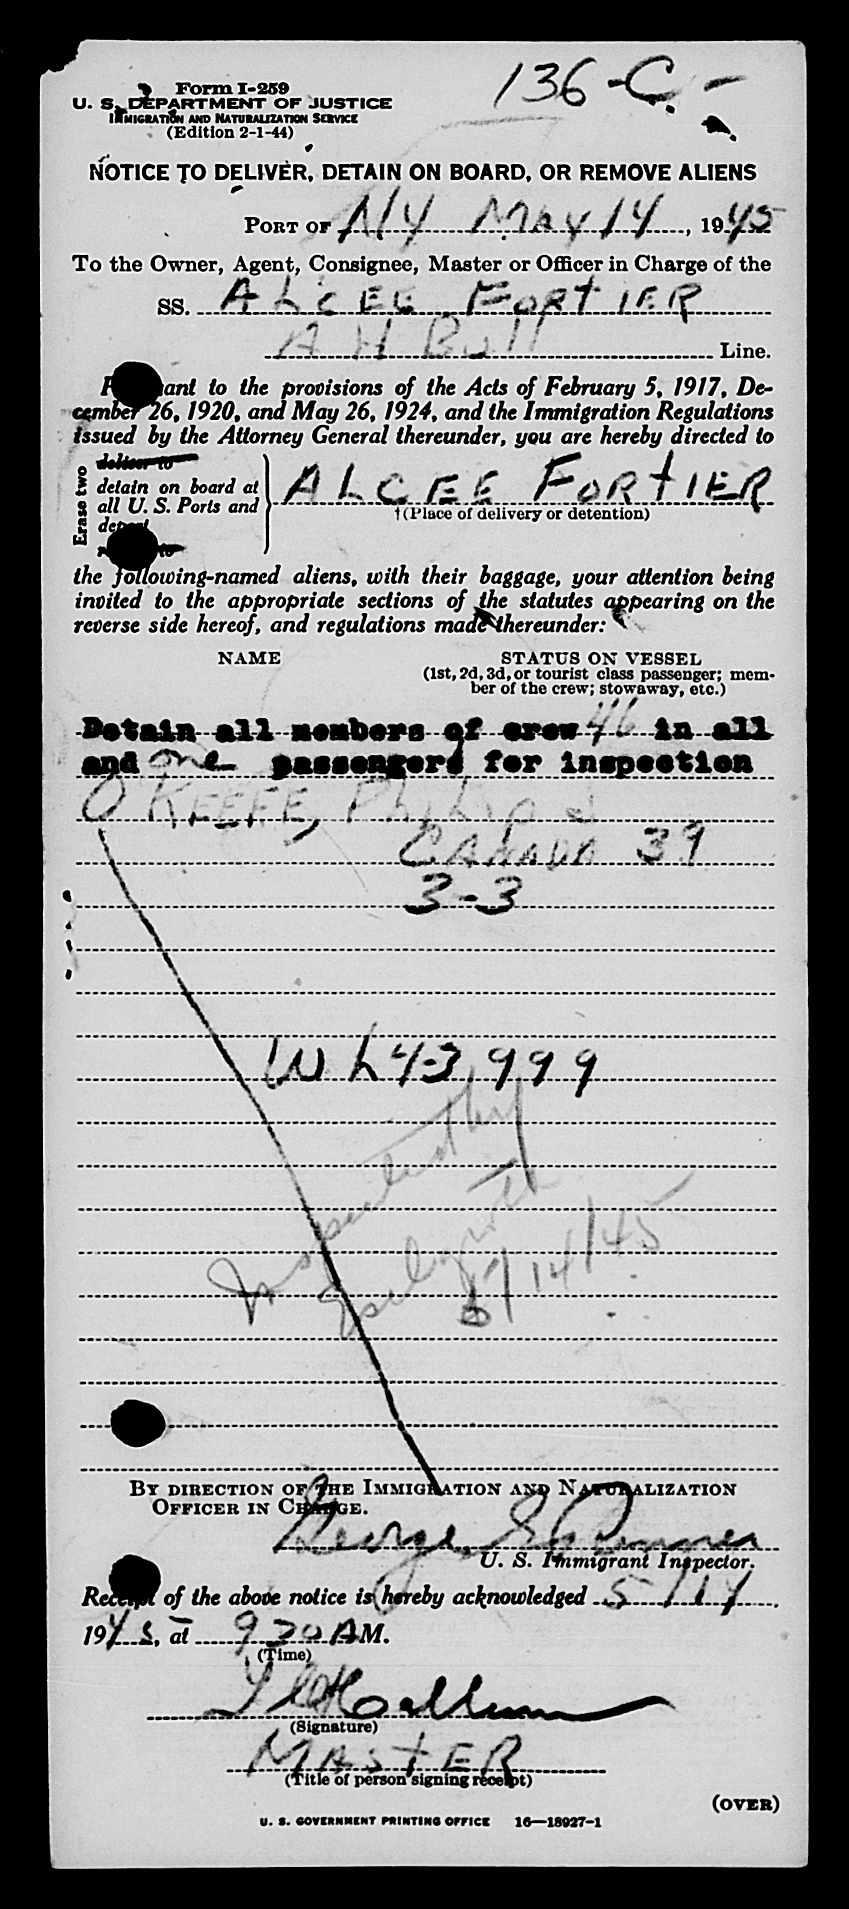 136-C-
Form I-259
U. S. DEPARTMENT OF JUSTICE
IMMIGRATION AND NATURALIZATION SERVICE
(Edition 2-1-44)
NOTICE TO DELIVER, DETAIN ON BOARD, OR REMOVE ALIENS
PORT OF NY MAY 14, 1945
To the Owner, Agent, Consignee, Master or Officer in Charge of the
SS. ALCEE FORTIER
A H Bull Line.
ant to the provisions of the Acts of February 5, 1917, De-
cember 26, 1920, and May 26, 1924, and the Immigration Regulations
issued by the Attorney General thereunder, you are hereby directed to
Erase two
deliver to
detain on board at
all U. S. Ports and
ALCEE FORTIER
†(Place of delivery or detention)
the following-named aliens, with their baggage, your attention being
invited to the appropriate sections of the statutes appearing on the
reverse side hereof, and regulations made thereunder:
NAME
STATUS ON VESSEL
(1st, 2d, 3d, or tourist class passenger; mem-
ber of the crew; stowaway, etc.)
Detain all members of crew 46 in all
and one passengers for inspection
O'KEEFE, Philip J
CANADA 39
3-3
W L 43,999
Inspected by
5/14/45
BY DIRECTION OF THE IMMIGRATION AND NATURALIZATION
OFFICER IN CHARGE.
George
U. S. Immigrant Inspector.
Receipt of the above notice is hereby acknowledged 5/14,
1945, at 9 30 AM.
(Time)
(Signature)
MASTER
(Title of person signing receipt)
(OVER)
U. S. GOVERNMENT PRINTING OFFICE 16—18927-1